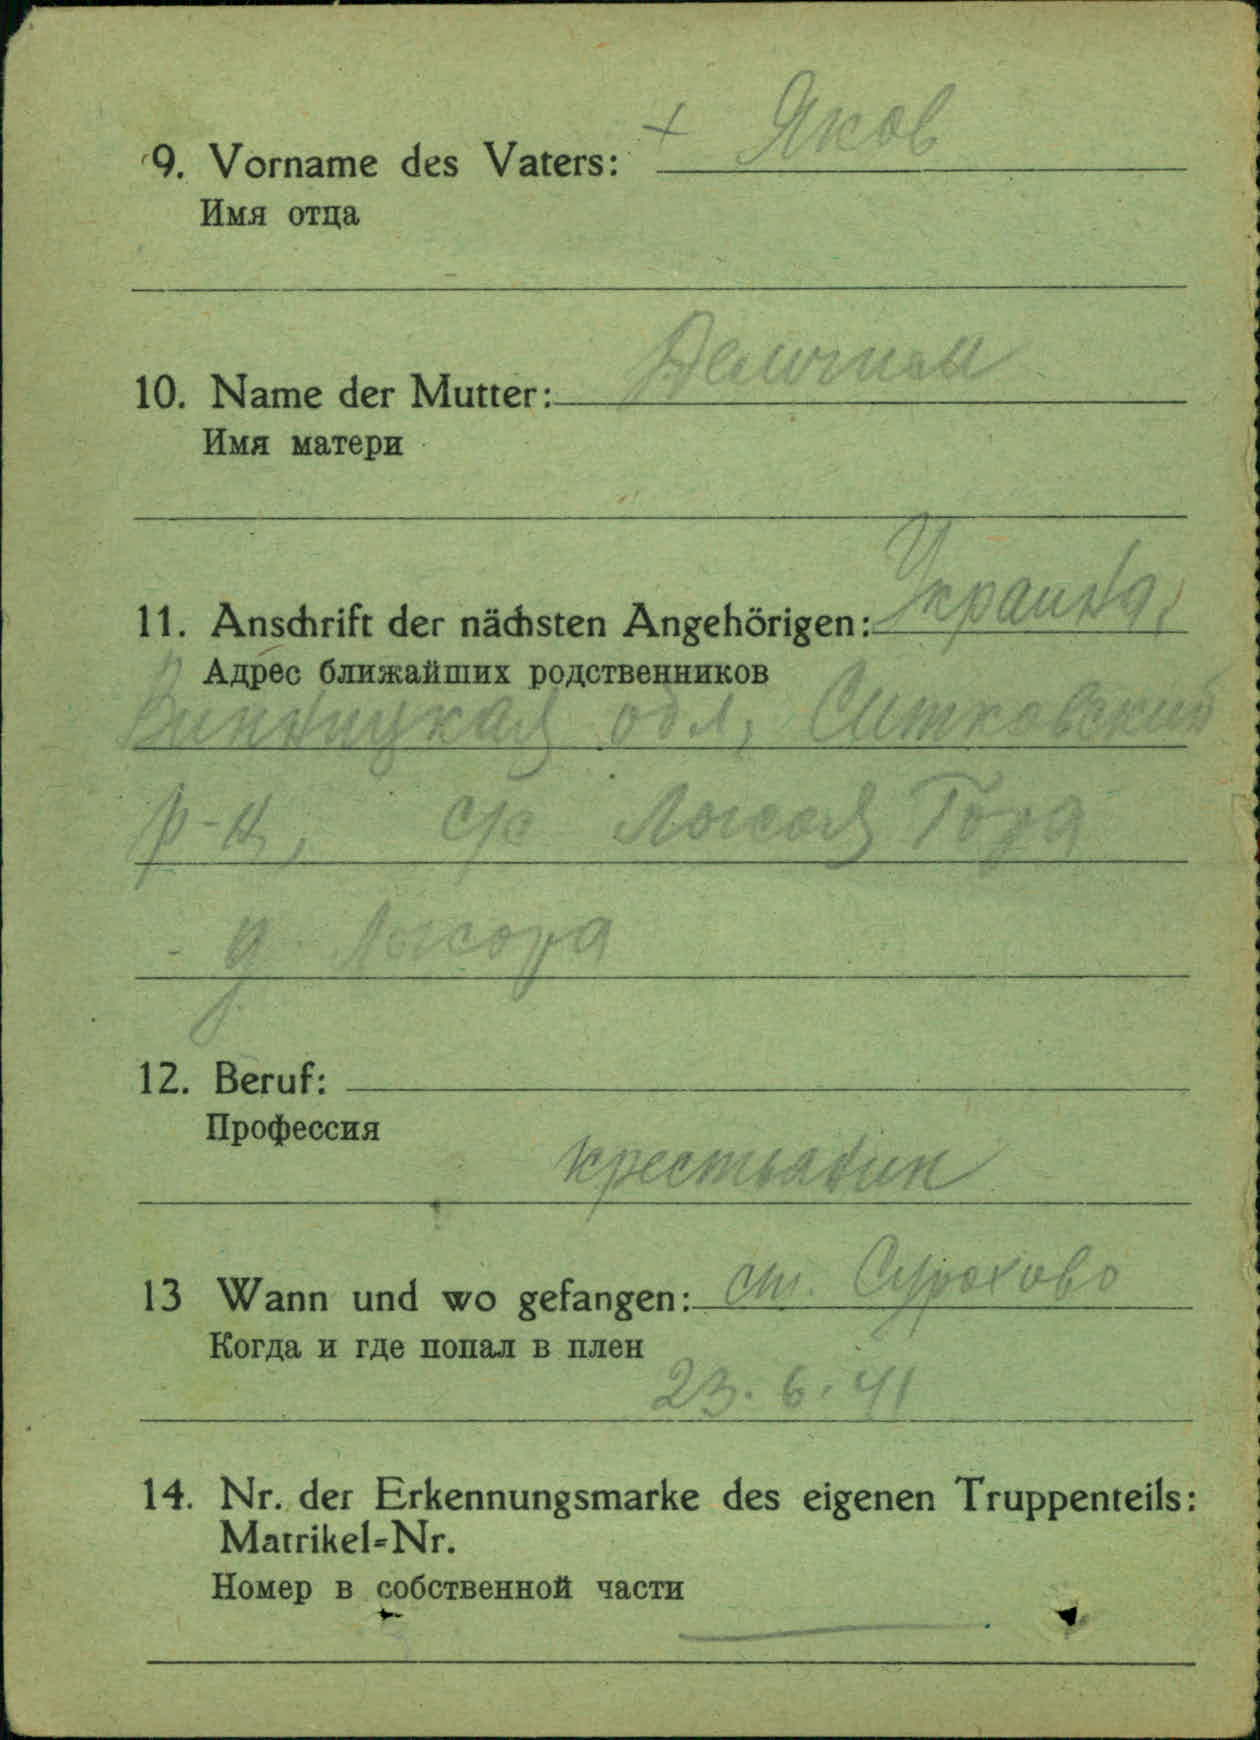 9. Vorname des Vaters: + Яков
Имя отца
10. Name der Mutter:
Имя матери
11. Anschrift der nächsten Angehörigen: Украина,
Адрес ближайших родственников
Винницкая обл, Ситковский
р-н, с/с Лысая Гора
д. Лысогра
12. Beruf:
Профессия
крестьянин
13 Wann und wo gefangen: ст. Сурохово
Когда и где попал в плен
23. 6. 41
14. Nr. der Erkennungsmarke des eigenen Truppenteils:
Matrikel-Nr.
Номер в собственной части